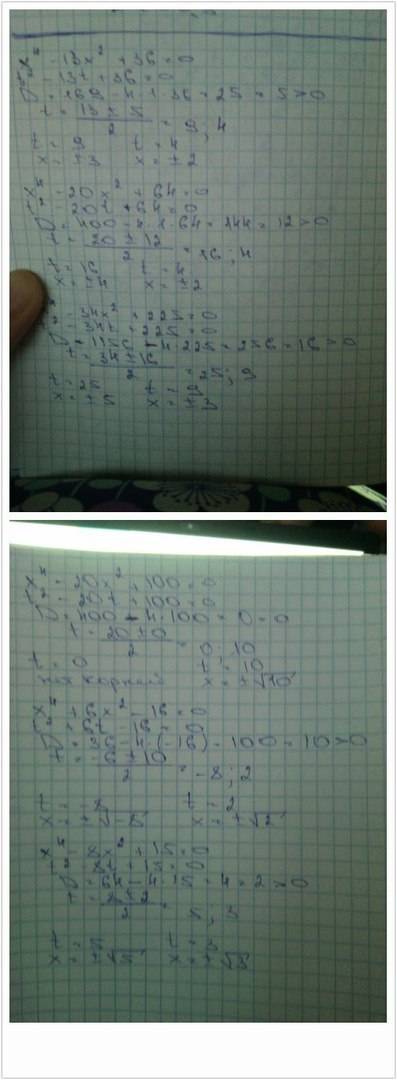 x⁴ - 13x² + 36 = 0
t² - 13t + 36 = 0
D = 169 - 4 · 1 · 36 = 25 = 5 > 0
t = (13 ± 5)/2 = 9; 4
t = 9 t = 4
x = ±3 x = ±2
x⁴ - 20x² + 64 = 0
t² - 20t + 64 = 0
D = 400 - 4 · 1 · 64 = 144 = 12 > 0
t = (20 ± 12)/2 = 16; 4
t = 16 t = 4
x = ±4 x = ±2
x⁴ - 34x² + 225 = 0
t² - 34t + 225 = 0
D = 1156 - 4 · 225 = 256 = 16 > 0
t = (34 ± 16)/2 = 25; 9
t = 25 t = 9
x = ±5 x = ±3
x⁴ - 20x² + 100 = 0
t² - 20t + 100 = 0
D = 400 - 4 · 100 = 0 = 0
t = (20 ± 0)/2 = 0; 10
t = 0 t = 10
нет корней x = ±√10
x⁴ + 6x² - 16 = 0
t² + 6t - 16 = 0
D = 36 - 4 · (-16) = 100 = 10 > 0
t = (-6 ± 10)/2 = -8; 2
t = -8 t = 2
x = ±√-8 x = ±√2
x⁴ - 8x² + 15 = 0
t² - 8t + 15 = 0
D = 64 - 4 · 15 = 4 = 2 > 0
t = (8 ± 2)/2 = 5; 3
t = 5 t = 3
x = ±√5 x = ±√3